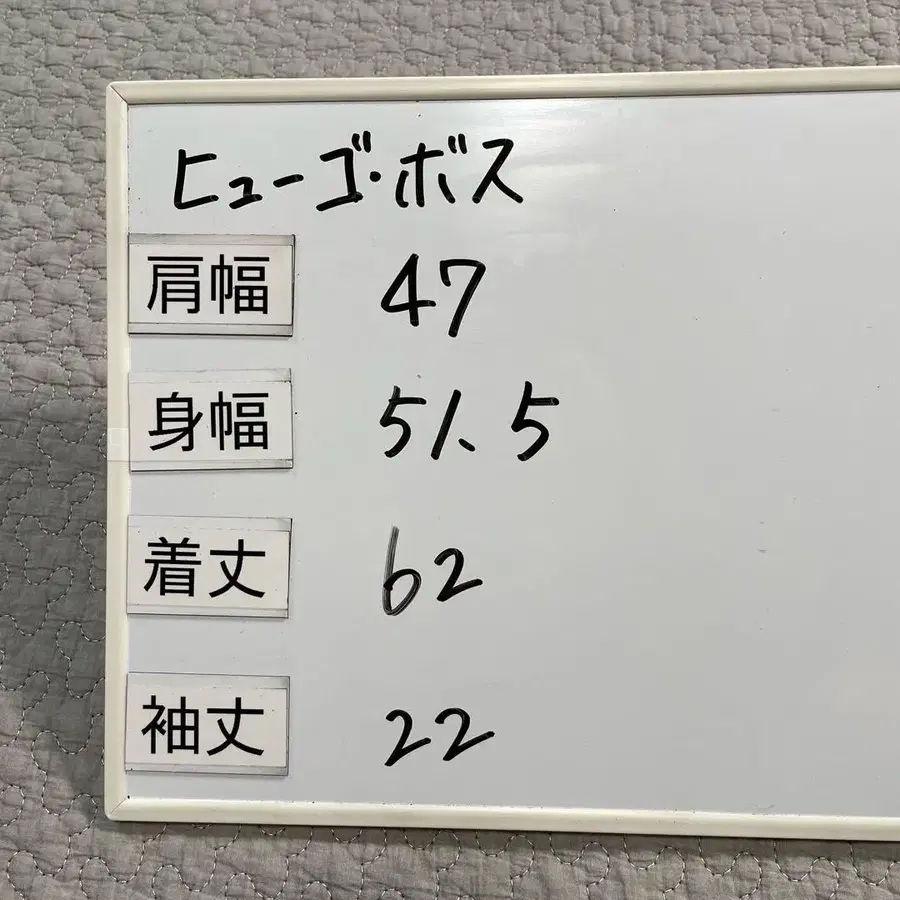 ヒューゴ・ボス
肩幅 47
身幅 51.5
着丈 62
袖丈 22